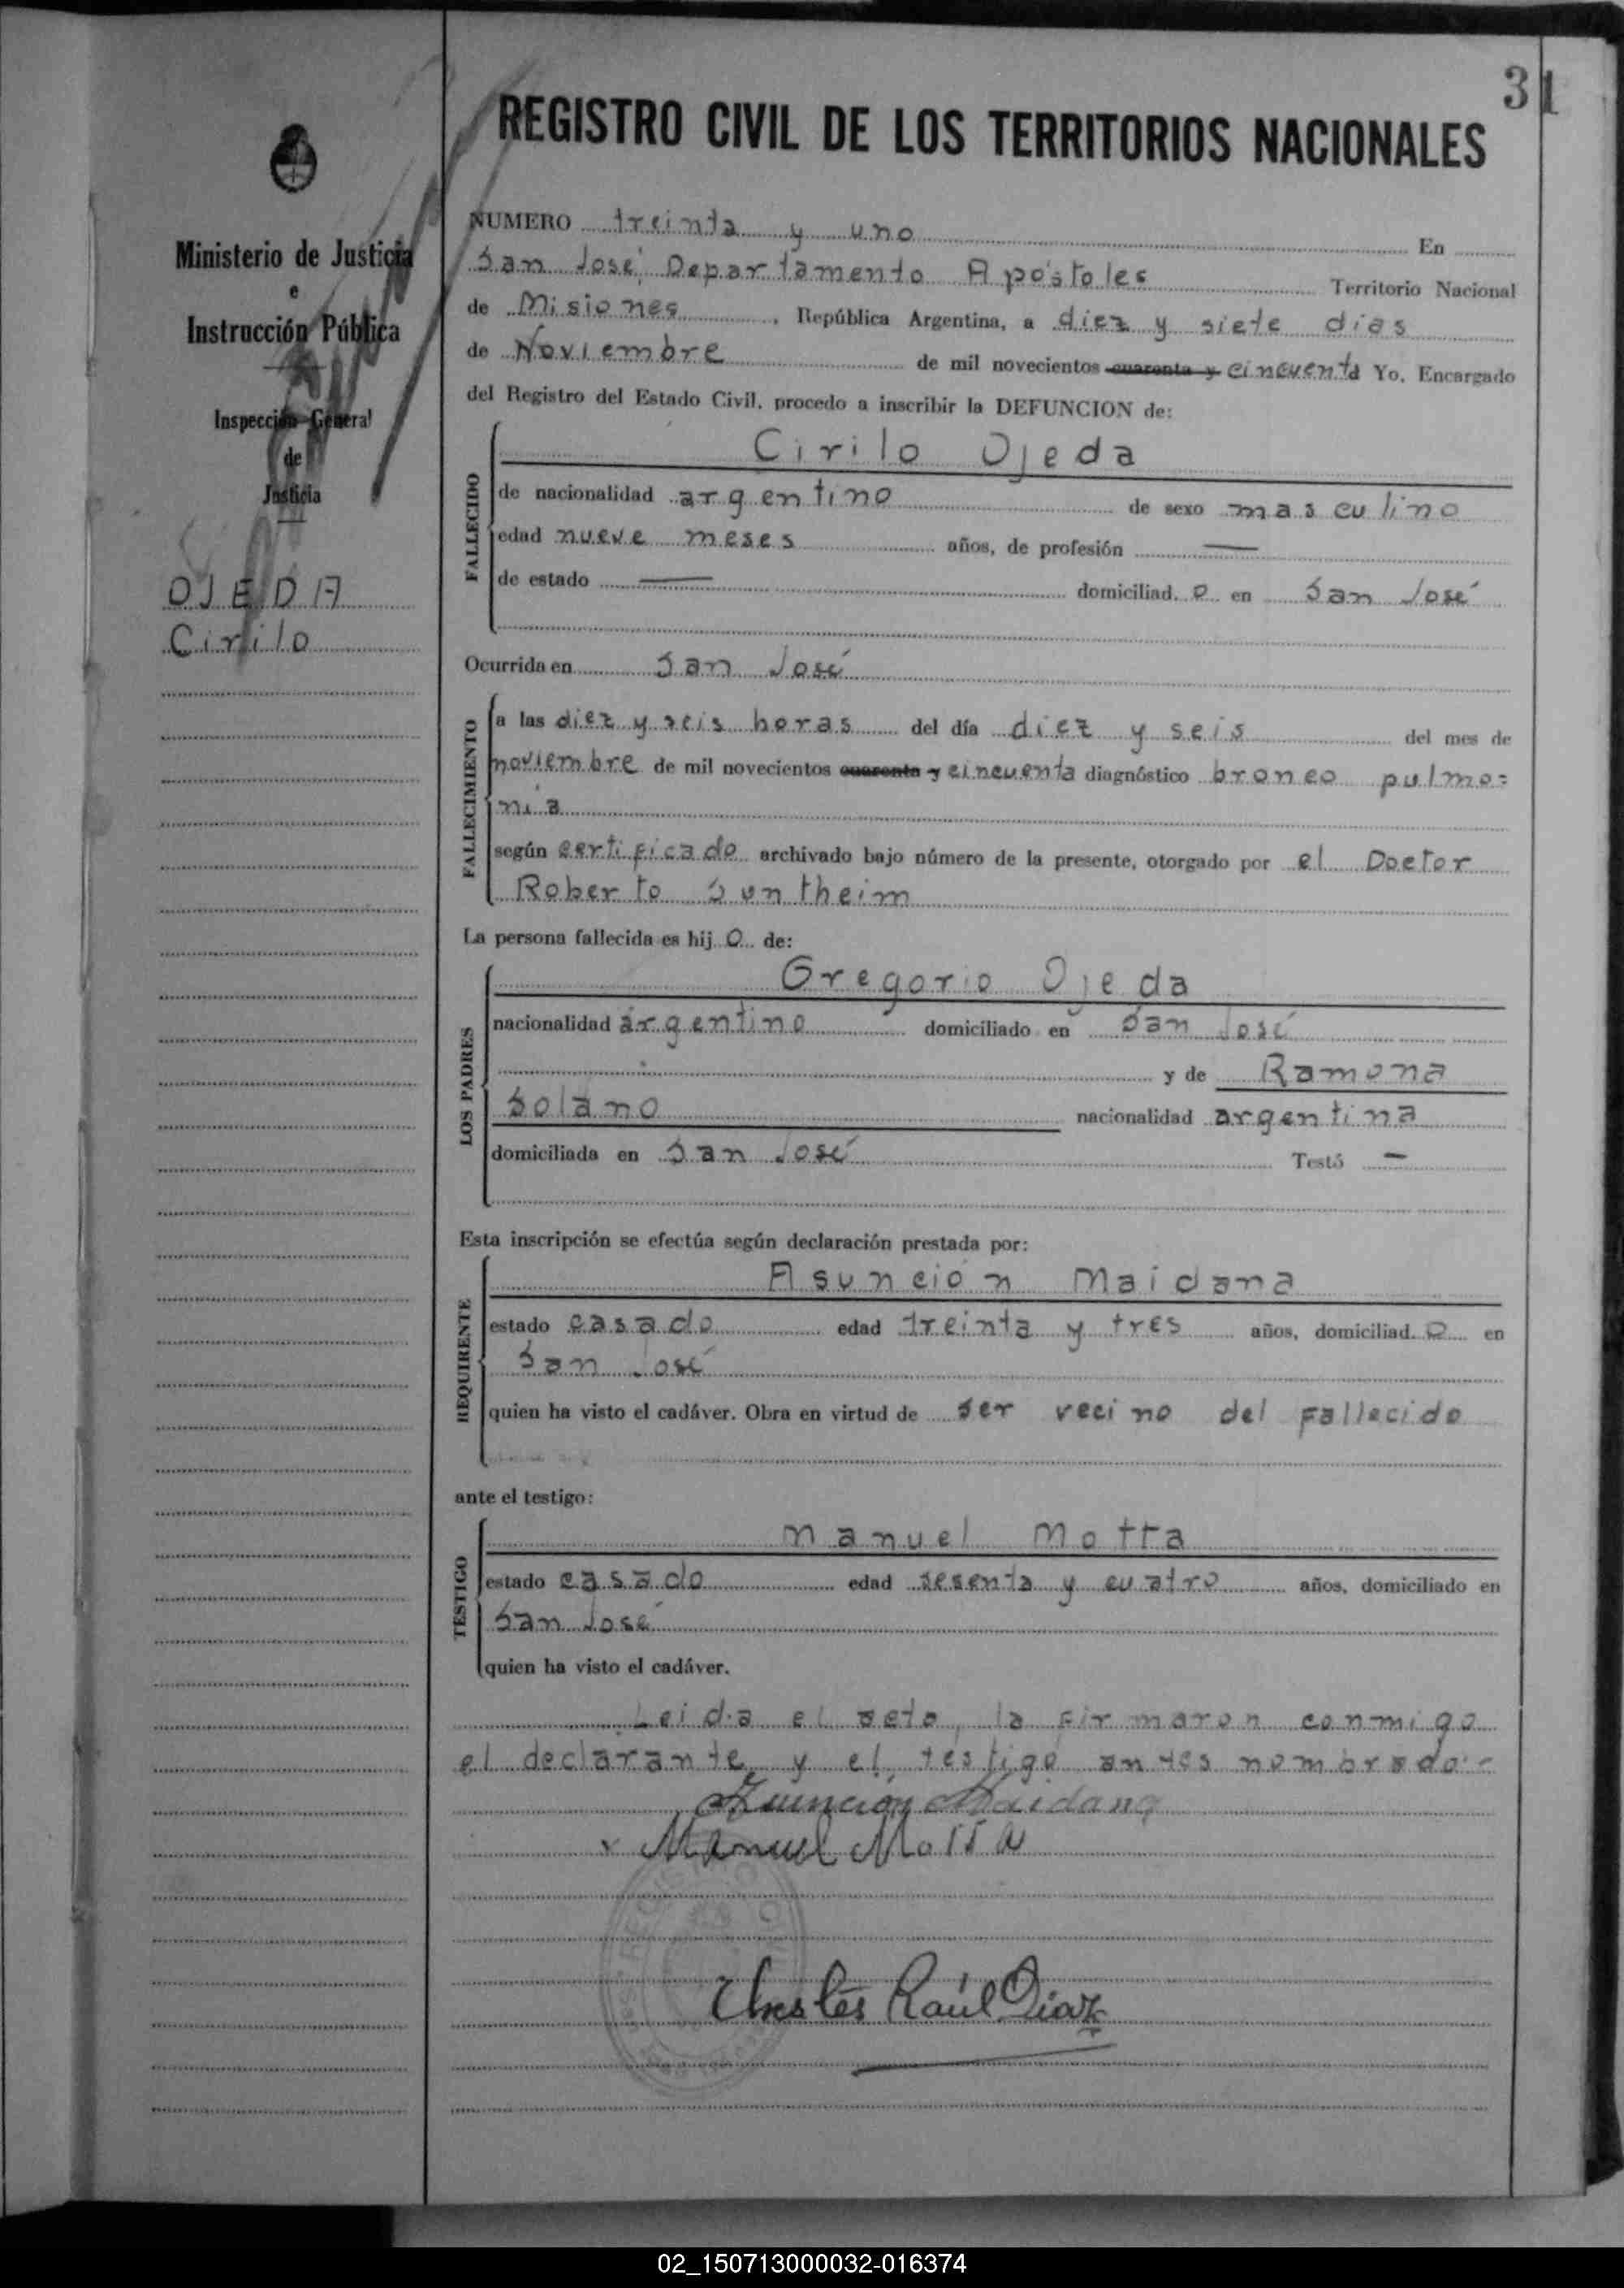 31
REGISTRO CIVIL DE LOS TERRITORIOS NACIONALES
Ministerio de Justicia
e
Instrucción Pública
Inspección General
de
Justicia
OJEDA
Cirilo
NUMERO treinta y uno En
San José, Departamento Apóstoles Territorio Nacional
de Misiones, República Argentina, a diez y siete dias
de Noviembre de mil novecientos cuarenta y cincuenta Yo, Encargado
del Registro del Estado Civil, procedo a inscribir la DEFUNCION de:
FALLECIDO
Cirilo Ojeda
de nacionalidad argentino de sexo masculino
edad nueve meses años, de profesión —
de estado — domiciliad o en San José
Ocurrida en San José
FALLECIMIENTO
a las diez y seis horas del día diez y seis del mes de
noviembre de mil novecientos cuarenta y cincuenta diagnóstico bronco pulmo=
nia
según certificado archivado bajo número de la presente, otorgado por el Doctor
Roberto Suntheim
La persona fallecida es hij o de:
LOS PADRES
Gregorio Ojeda
nacionalidad argentino domiciliado en San José
y de Ramona
Solano nacionalidad argentina
domiciliada en San José Testó —
Esta inscripción se efectúa según declaración prestada por:
REQUIRENTE
Asunción Maidana
estado casado edad treinta y tres años, domiciliad o en
San José
quien ha visto el cadáver. Obra en virtud de ser vecino del fallecido
ante el testigo:
TESTIGO
Manuel Motta
estado casado edad sesenta y cuatro años, domiciliado en
San José
quien ha visto el cadáver.
Leida el acta, la firmaron conmigo
el declarante y el testigo antes nombrado.-
Asunción Maidana
Manuel Motta
Raúl Diaz
02_150713000032-016374